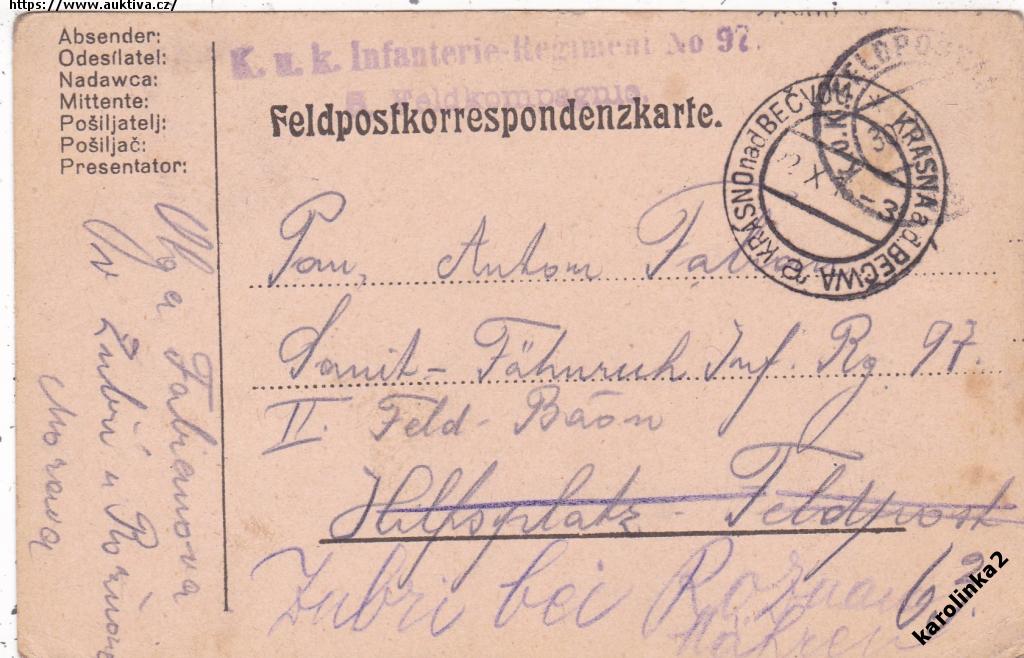 https://www.auktiva.cz/
Absender:
Odesílatel:
Nadawca:
Mittente:
Pošiljatelj:
Pošiljač:
Presentator:
K. u. k. Infanterie-Regiment No 97.
Feldkompagnie.
Feldpostkorrespondenzkarte.
FELDPOST
KRÁSNO nad BEČVOU * KRASNA a.d. BEČWA
Pan, Anton
Sanit-Fähnrich Inf. Rg. 97.
II. Feld-Baon
Hilfsplatz-Feldpost
Zubri bei Roznau
Mähren
Olga Fabianova
Zubří u Rožnova
Morava
karolinka2